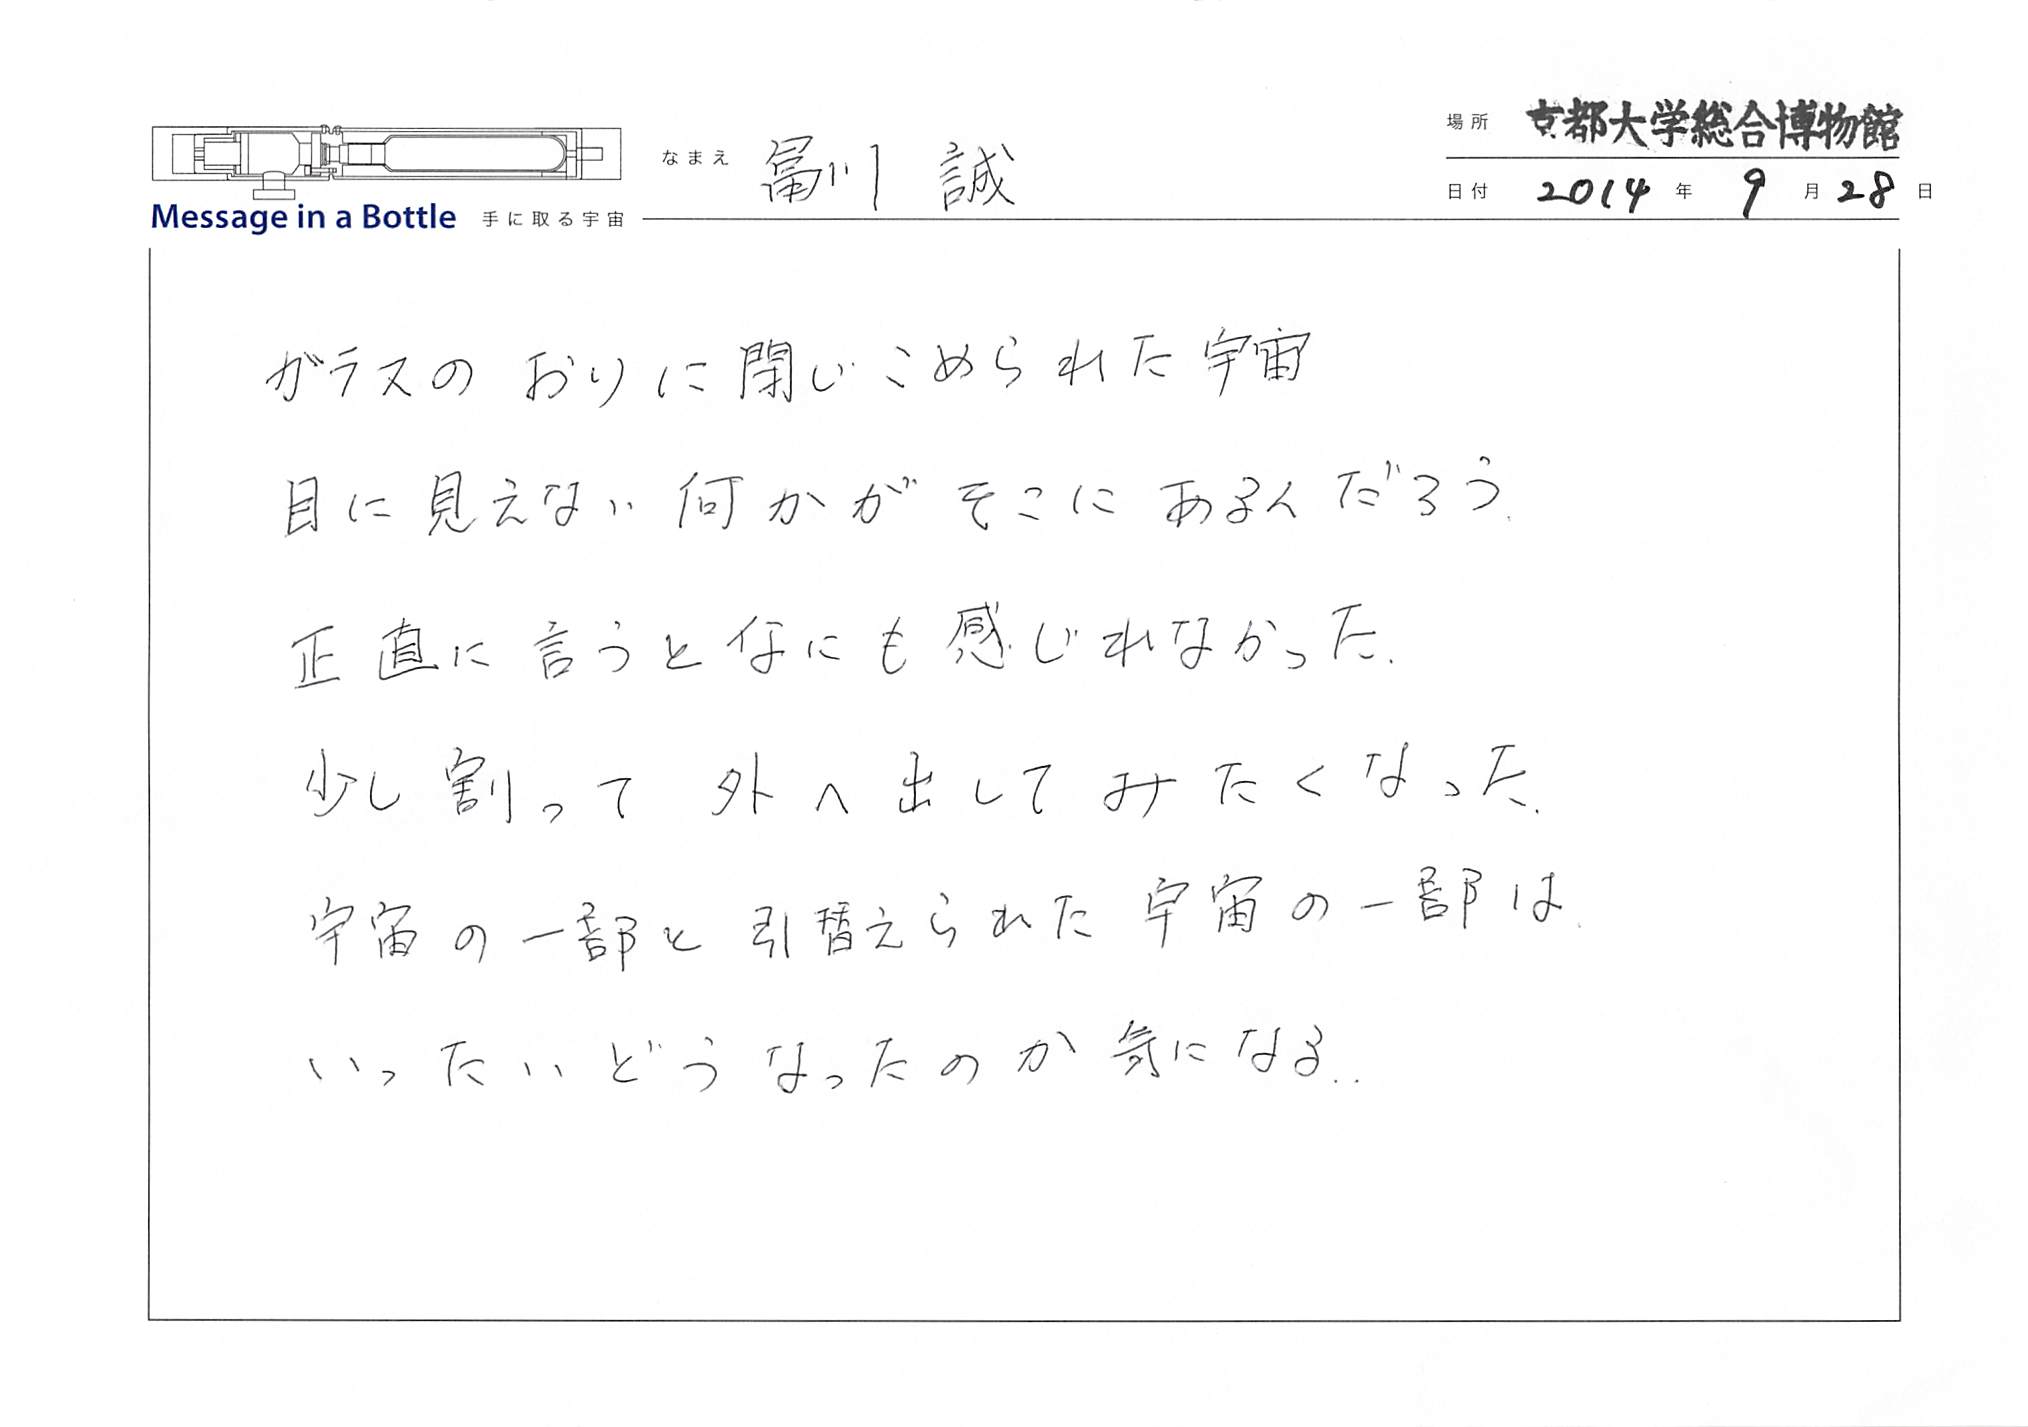 場所 京都大学総合博物館
なまえ 冨川 誠
日付 2014 年 9 月 28 日
Message in a Bottle 手に取る宇宙
ガラスの おりに閉じこめられた宇宙
目に見えない何かがそこにあるんだろう.
正直に言うとなにも感じれなかった.
少し割って 外へ出してみたくなった.
宇宙の一部と引替えられた宇宙の一部は.
いったいどうなったのか気になる..